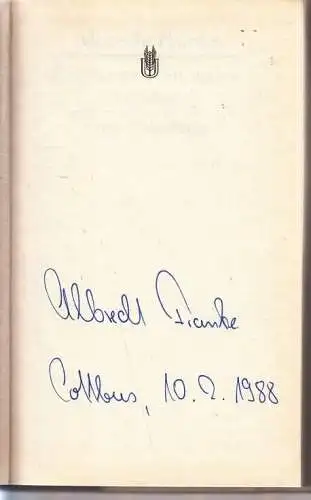 Albrecht Franke
Cottbus, 10.2.1988